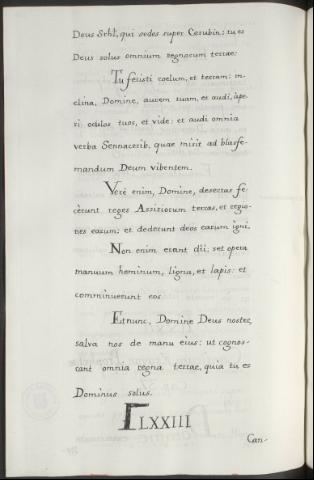 Deus Srhl, qui sedes super Cerubin: tu es
Deus solus omnium regnorum terrae:
Tu fecisti coelum, et terram: in-
clina, Domine, aurem tuam, et audi, ape-
ri oculos tuos, et vide: et audi omnia
verba Sennacerib, quae misit ad blasfe-
mandum Deum viventem.
Vere enim, Domine, desertas fe-
cèrunt reges Assiriorum terras, et regio-
nes earum: et dederunt deos earum igni.
Non enim erant dii; set opera
manuum hominum, ligna, et lapis: et
comminuerunt eos
Et nunc, Domine Deus noster,
salva nos de manu eius: ut cognos-
cant omnia regna terrae, quia tu es
Dominus solus.
LXXIII
Can-